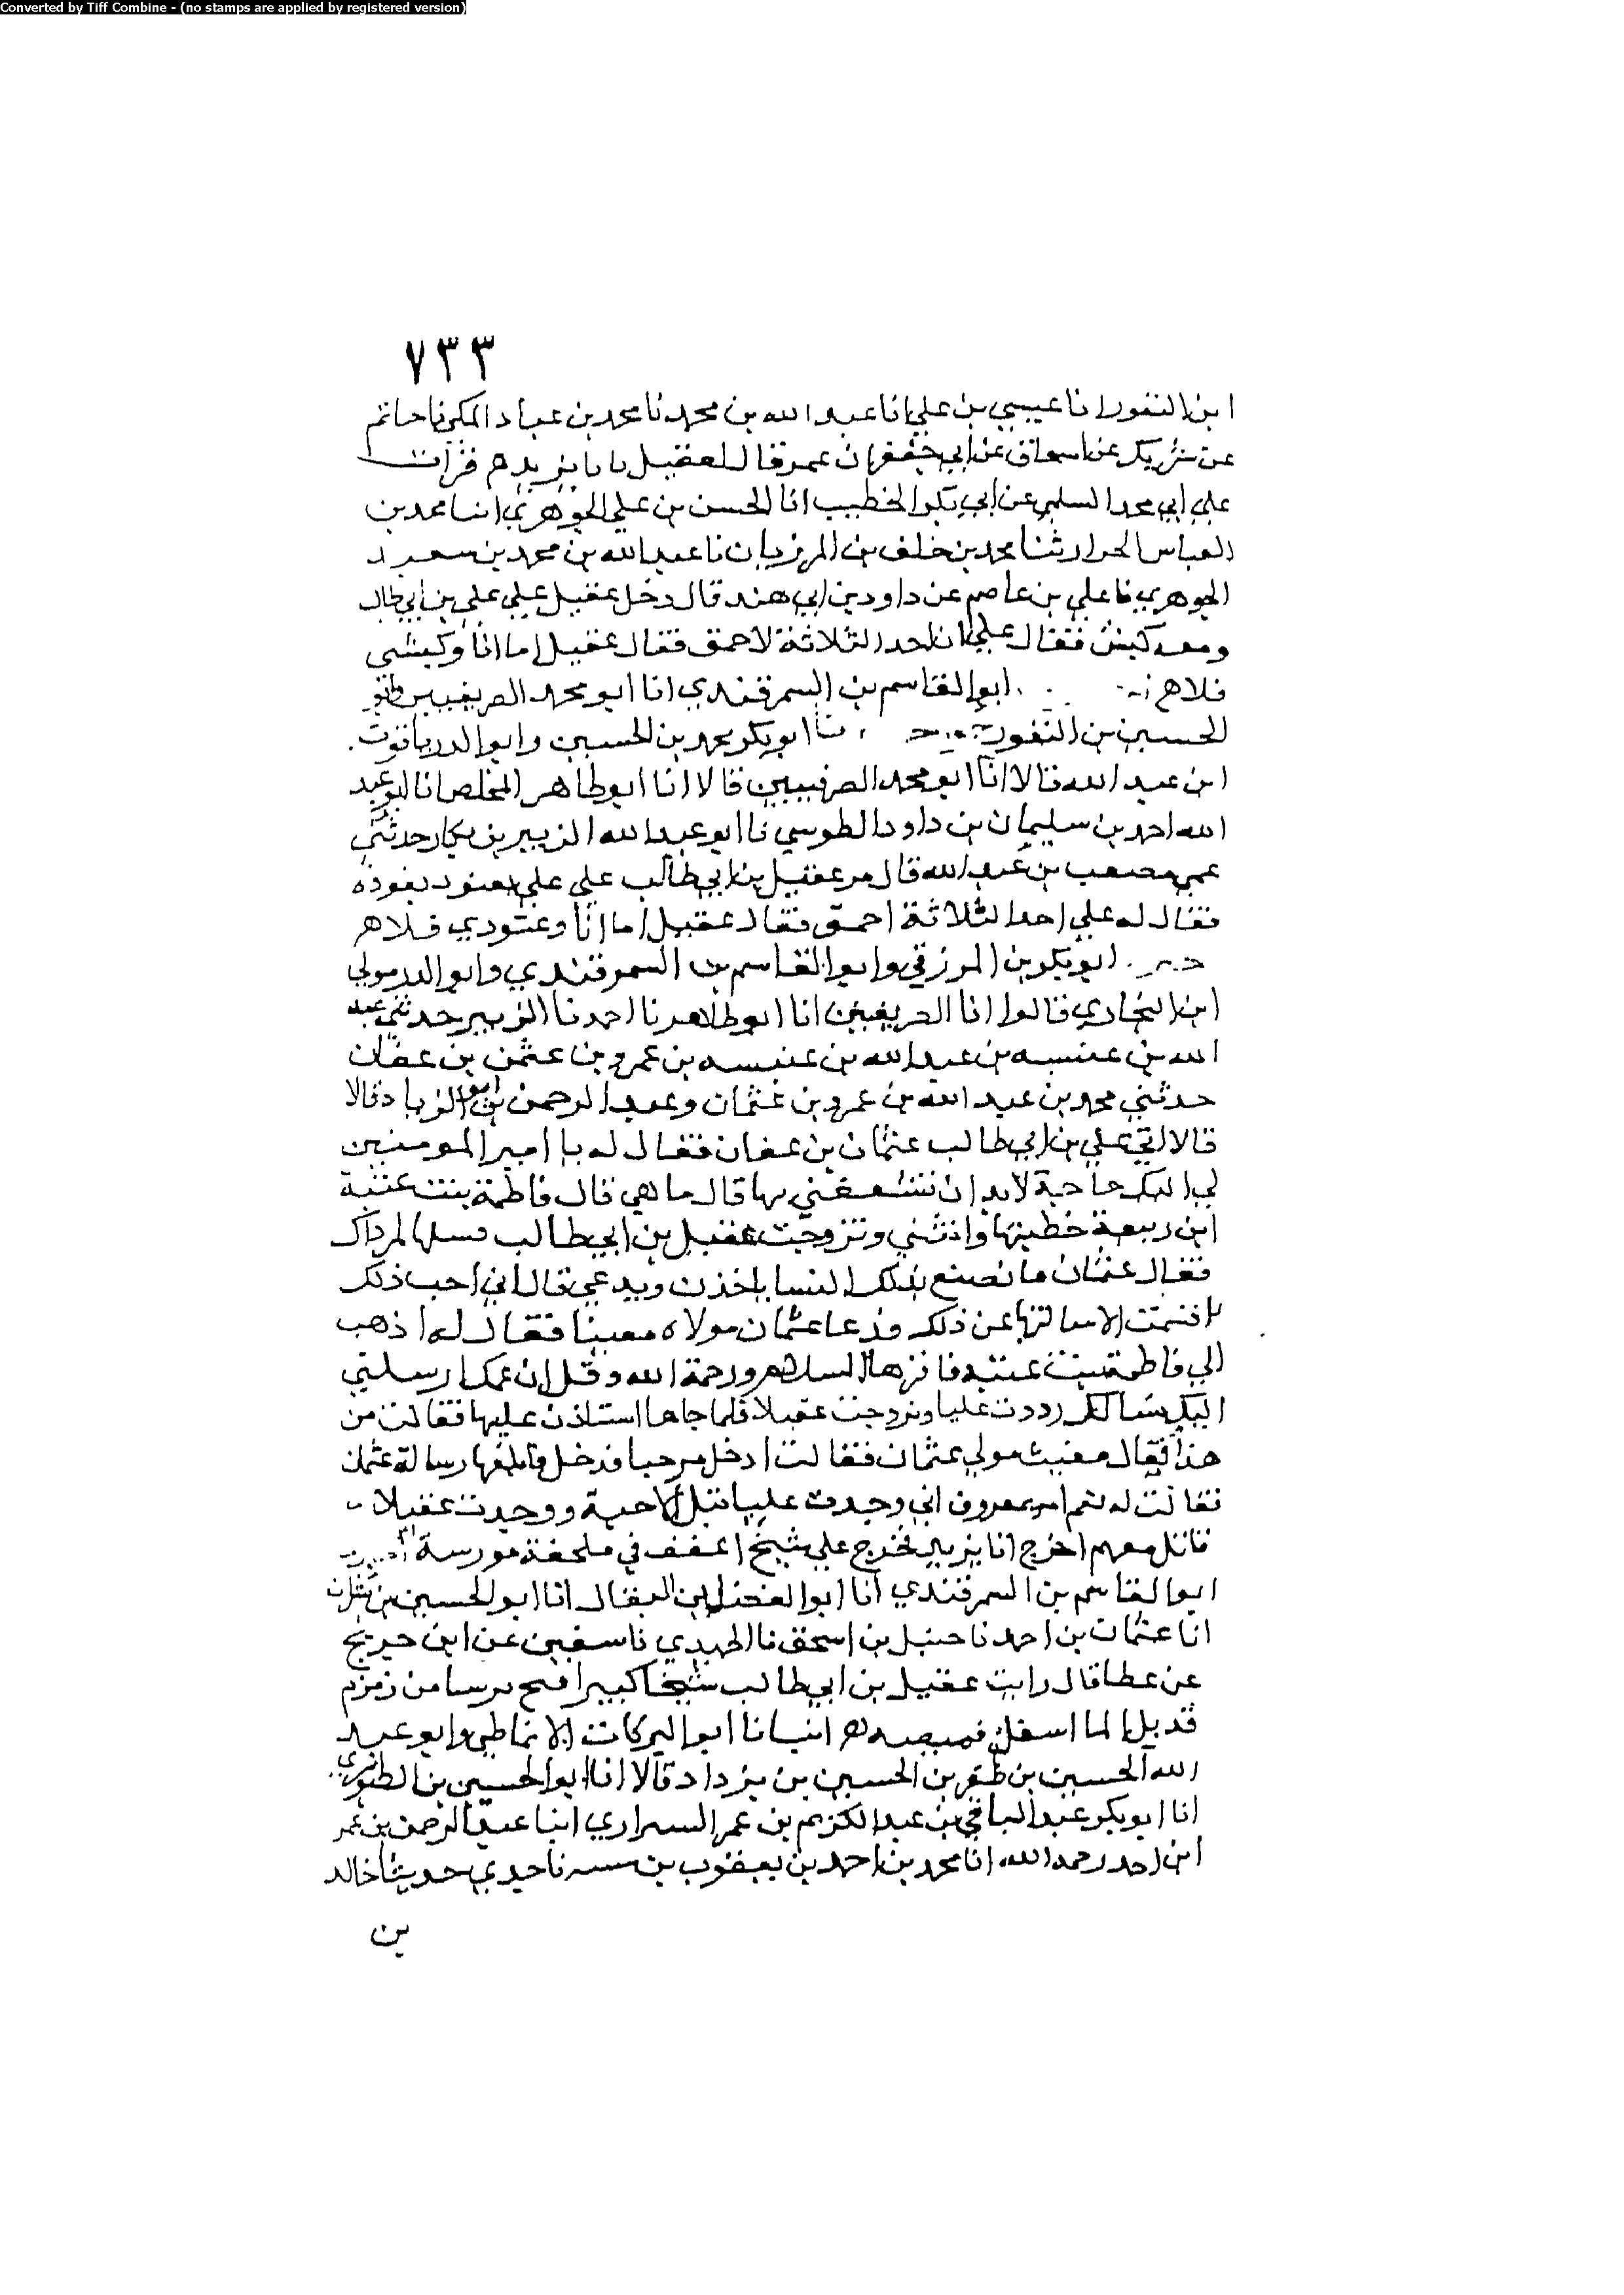 Converted by Tiff Combine - (no stamps are applied by registered version)
٧٣٣
ابن النقور انا عيسي بن علي انا عبد الله بن محمد نا محمد بن عباد المكي نا حاتم
عن شريك عن اسحاق عن ابي جعفر ان عمر قال لعقيل يا با يزيد هم قرات
علي ابي محمد السلمي عن ابي بكر الخطيب انا الحسن بن علي الجوهري انا محمد بن
العباس الحرار ثنا محمد بن خلف بن المرزبان نا عبد الله بن محمد بن سعيد
الجوهري نا علي بن عاصم عن داود بن ابي هند قال دخل عقيل علي علي بن ابي طالب
ومعه كبش فقال علي ان احد الثلاثة لاحمق فقال عقيل اما انا وكبشي
فلا هـ ابو القاسم بن السمرقندي انا ابو محمد الصريفيني وابو
الحسين بن النقور ح نا ابو بكر محمد بن الحسين وابو الدر ياقوت
ابن عبد الله قالا انا ابو محمد الصريفيين قالا انا ابو طاهر المخلص انا ابو عبد
الله احمد بن سليمان بن داود الطوسي نا ابو عبد الله الزبير بن بكار حدثني
عمي مصعب بن عبد الله قال مر عقيل بن ابي طالب علي علي بعتود يقوده
فقال له علي احد الثلاثة احمق فقال عقيل اما انا وعتودي فلا هـ
ابو بكر بن المرزقي وابو القاسم بن السمرقندي وابو الدر مولي
ابن البخاري قالوا انا الصريفيني انا ابو طاهر نا احمد نا الزبير حدثني عبد
الله بن عنبسه بن عبد الله بن عنبسه بن عمرو بن عثمن بن عفان
حدثني محمد بن عبد الله بن عمرو بن عثمان وعبد الرحمن بن ابي الزناد قالا
قالا لقي علي بن ابي طالب عثمان بن عفان فقال له يا امير المومنين
لي اليك حاجة لابد ان تشفعني بها قال ما هي قال فاطمة بنت عتبة
ابن ربيعة خطبتها وتزوجت عقيل بن ابي طالب فسلها لم ذاك
فقال عثمان ما تصنع بتلك النسا ياخذن ويدعي قال اني احب ذلك
اقسمت الا سالتها عن ذلك ودعا عثمان مولاه فقال له اذهب
الي فاطمة بنت عتبه فاقرها السلام ورحمة الله وقل ان عمك ارسلني
اليك يسالك رددت عليا وتزوجت عقيلا فلما جاها استاذن عليها فقالت من
هذا فقال مولي عثمان فقالت ادخل مرحبا فدخل فابلغها رسالة عثمان
فقالت له نعم امر معروف اني وجدت عليا قتل الاحبة ووجدت عقيلا
قاتل معهم اخرج انا يزيد فخرج علي شيخ اعقف في ملحفة مورسة
ابو القاسم بن السمرقندي انا ابو الفضل بن البقال انا ابو الحسين بن بشران
انا عثمان بن احمد نا حنبل بن اسحق نا الحميدي نا سفين عن ابن جريج
عن عطا قال رايت عقيل بن ابي طالب شيخا كبيرا من زمزم
قد بل الما اسفل قميصه هـ انبانا ابو البركات الانماطي وابو عبد
الله الحسين بن ظفر بن الحسين بن يزداد قالا انا ابو الحسين بن الطيوري
انا ابو بكر عبد الباقي بن عبد الكريم بن عمر السيراري ابنا عبد الرحمن بن عمر
ابن احمد رحمه الله انا محمد بن احمد بن يعقوب بن نا جدي حدثنا خالد
بن